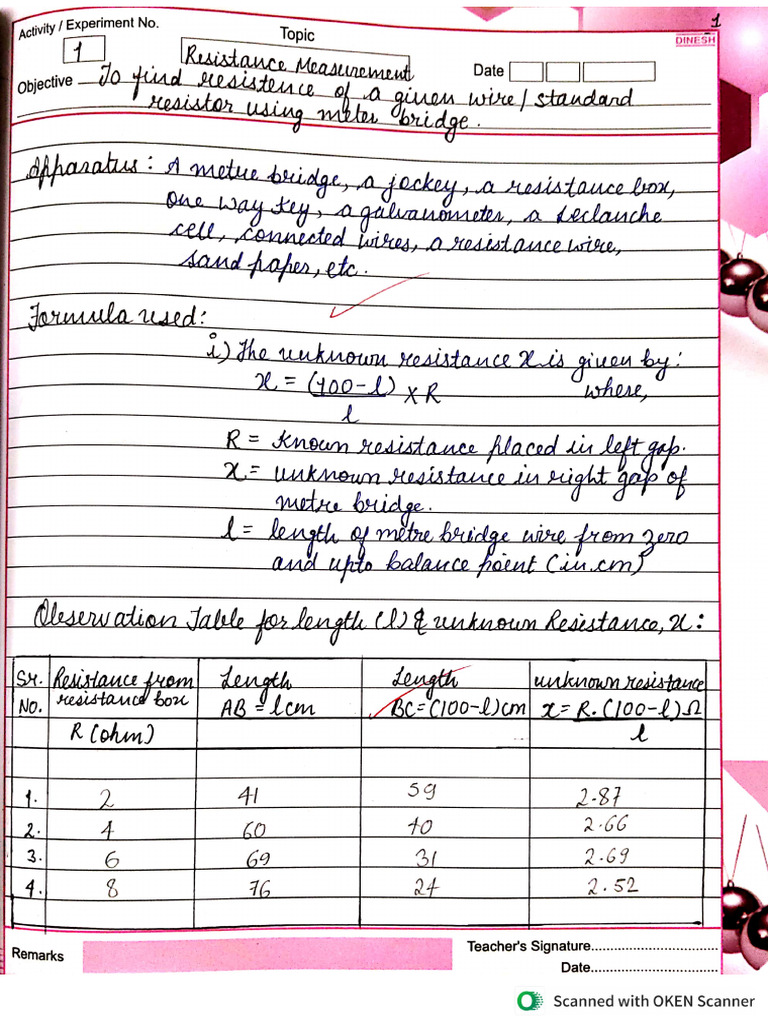 1
Activity / Experiment No.
Topic
DINESH
1
Resistance Measurement
Date
Objective To find resistence of a given wire/standard
resistor using meter bridge.
Apparatus: A metre bridge, a jockey, a resistance box,
one way key, a galvanometer, a Leclanche
cell, connected wires, a resistance wire,
sand paper, etc.
Formula used:
i) The unknown resistance x is given by:
x = (100-l) × R where,
l
R = Known resistance placed in left gap.
x = unknown resistance in right gap of
metre bridge.
l = length of metre bridge wire from zero
and upto balance point (in cm)
Observation Table for length (l) & unknown Resistance, x:
Sr. Resistance from Length Length unknown resistance
No. resistance box AB = l cm BC = (100-l) cm x = R. (100-l) Ω
R (ohm) l
1. 2 41 59 2.87
2. 4 60 40 2.66
3. 6 69 31 2.69
4. 8 76 24 2.52
Remarks
Teacher's Signature....................
Date....................
Scanned with OKEN Scanner